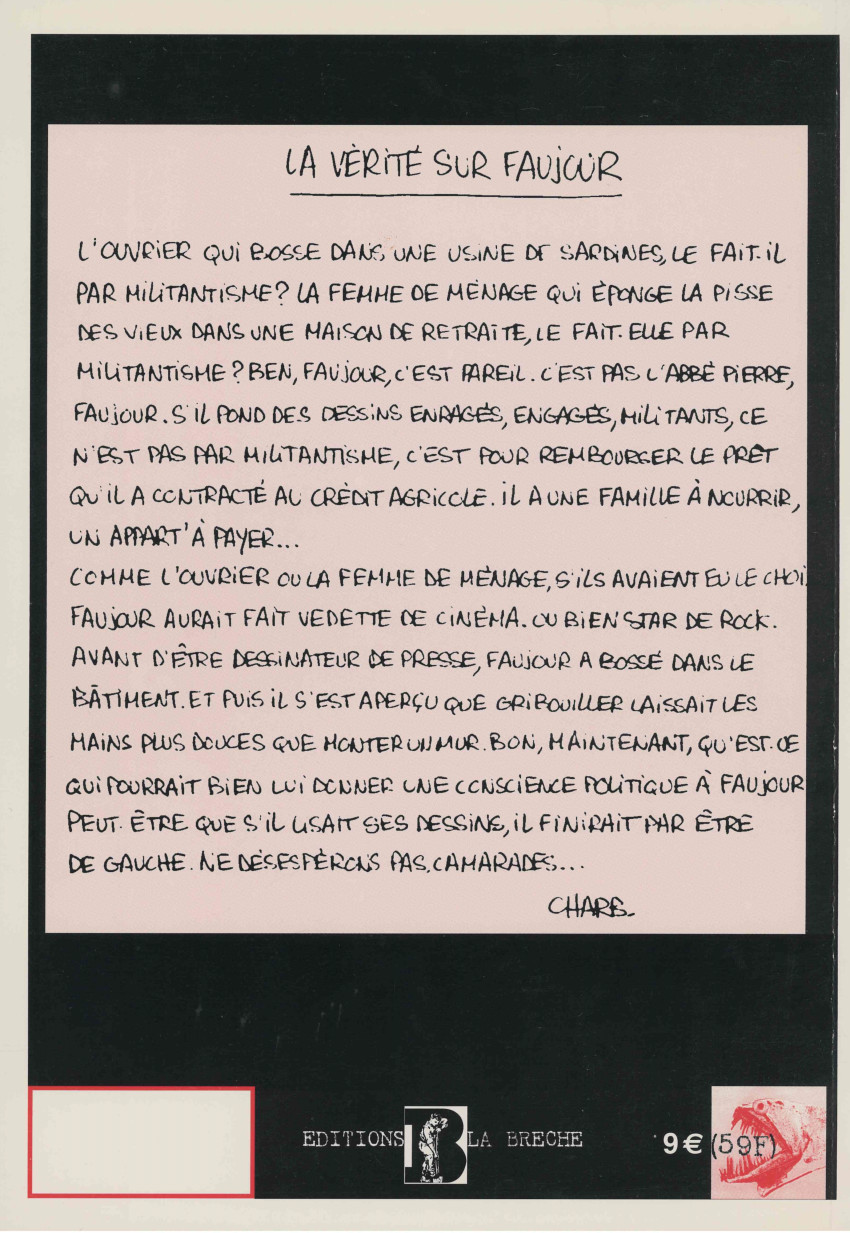 LA VÉRITÉ SUR FAUJOUR
L'OUVRIER QUI BOSSE DANS UNE USINE DE SARDINES, LE FAIT-IL
PAR MILITANTISME? LA FEMME DE MÉNAGE QUI ÉPONGE LA PISSE
DES VIEUX DANS UNE MAISON DE RETRAITE, LE FAIT-ELLE PAR
MILITANTISME? BEN, FAUJOUR, C'EST PAREIL. C'EST PAS L'ABBÉ PIERRE,
FAUJOUR. S'IL POND DES DESSINS ENRAGÉS, ENGAGÉS, MILITANTS, CE
N'EST PAS PAR MILITANTISME, C'EST POUR REMBOURGER LE PRÊT
QU'IL A CONTRACTÉ AU CRÉDIT AGRICOLE. IL A UNE FAMILLE À NOURRIR,
UN APPART' À PAYER...
COMME L'OUVRIER OU LA FEMME DE MÉNAGE, S'ILS AVAIENT EU LE CHOI
FAUJOUR AURAIT FAIT VEDETTE DE CINÉMA. OU BIEN STAR DE ROCK.
AVANT D'ÊTRE DESSINATEUR DE PRESSE, FAUJOUR A BOSSÉ DANS LE
BÂTIMENT. ET PUIS IL S'EST APERÇU QUE GRIBOUILLER LAISSAIT LES
MAINS PLUS DOUCES QUE MONTER UN MUR. BON, MAINTENANT, QU'EST-CE
QUI POURRAIT BIEN LUI DONNER UNE CONSCIENCE POLITIQUE À FAUJOUR
PEUT-ÊTRE QUE S'IL LISAIT SES DESSINS, IL FINIRAIT PAR ÊTRE
DE GAUCHE. NE DÉSESPÉRONS PAS, CAMARADES...
CHARB.
EDITIONS B LA BRECHE
9€ (59F)